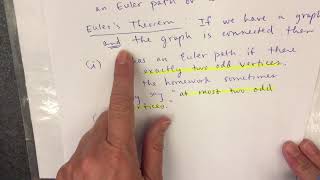 an Euler path or
Euler's Theorem :: If we have a graph
and the graph is connected then
(i) has an Euler path if there
exactly two odd vertices.
the homework sometimes
"at most two odd
vertices."